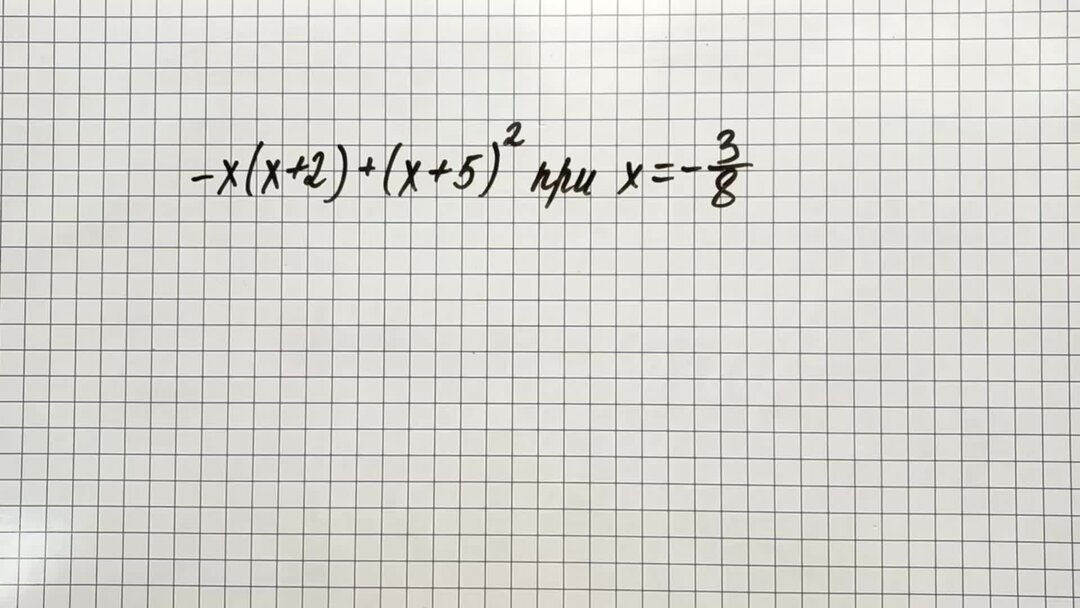 -x(x+2)+(x+5)² при x=-3/8